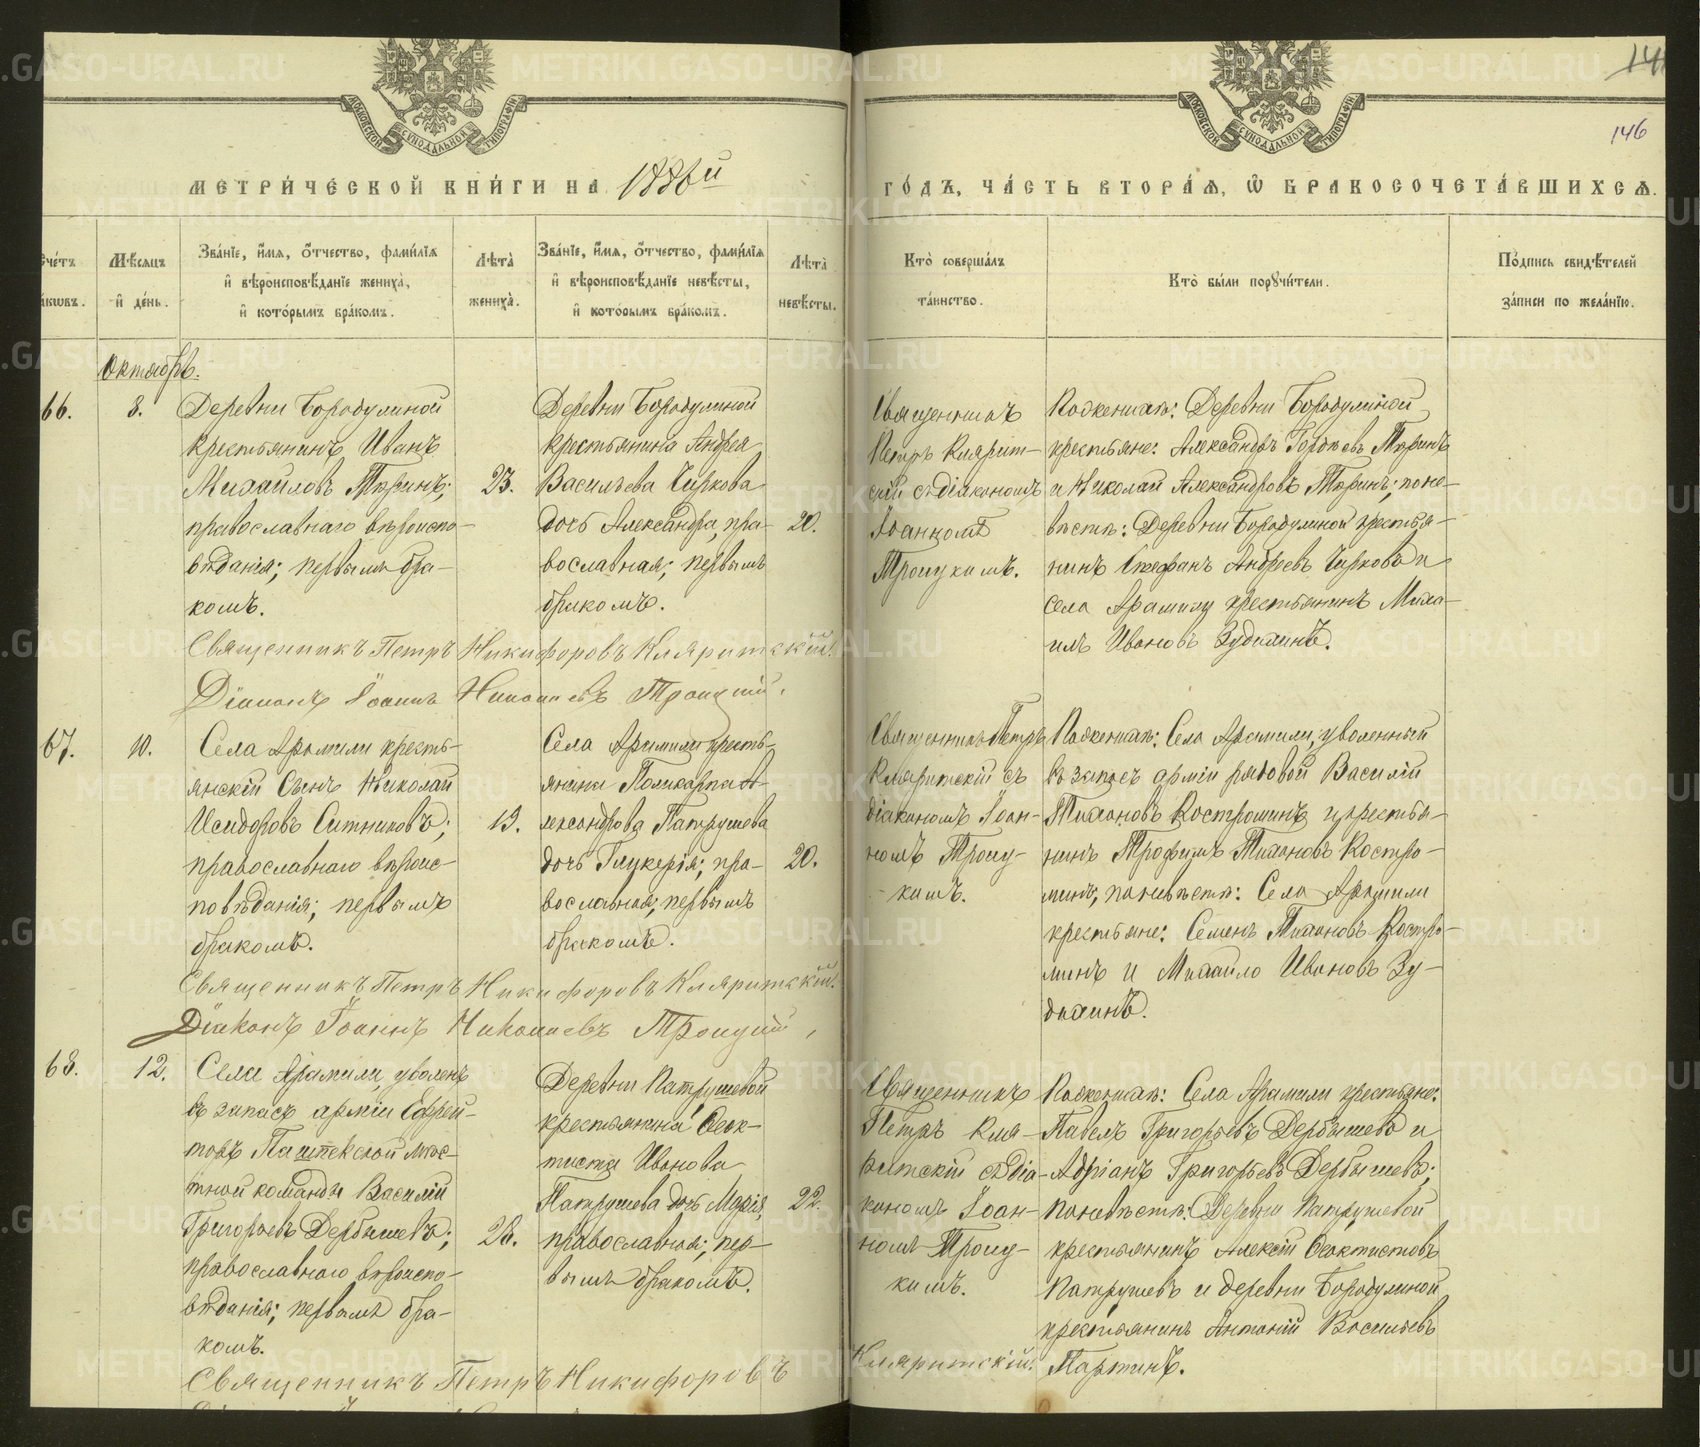 МЕТРИ́ЧЕСКОЙ КНИ́ГИ НА 1886й
ГО́ДЪ, ЧА́СТЬ ВТОРА́Ѧ, Ѽ БРАКОСОЧЕТА́ВШИХСѦ.
146
МОСКОВСКОЙ СѴНОДАЛЬНОЙ ТИПОГРАФІИ
МОСКОВСКОЙ СѴНОДАЛЬНОЙ ТИПОГРАФІИ
Мѣсѧцъ
и҆ де́нь.
Зва́нїе, и҆́мѧ, о҆́тчество, фами́лїѧ
и҆ вѣроисповѣ́данїе жениха̀,
и҆ кото́рымъ бра́комъ.
Лѣта̀
жениха̀.
Зва́нїе, и҆́мѧ, о҆́тчество, фами́лїѧ
и҆ вѣроисповѣ́данїе невѣ́сты,
и҆ кото́рымъ бра́комъ.
Лѣта̀
невѣ́сты.
Кто̀ соверша́лъ
та́инство.
Кто̀ бы́ли порꙋчи́тели.
По́дпись свидѣ́телей
за́писи по жела́нїю.
Октябрь.
66.
8.
Деревни Бородулиной
крестьянинъ Иванъ
Михайловъ Тюринъ;
православнаго вѣроиспо-
вѣданія; первымъ бра-
комъ.
23.
Деревни Бородулиной
крестьянина Андрея
Васильева Чуркова
дочь Александра, пра-
вославная; первымъ
бракомъ.
20.
Священникъ
Петръ Кляритс-
кій съ діакономъ
Іоанномъ
Троицкимъ.
По женихѣ: Деревни Бородулиной
крестьяне: Александръ Тюринъ
и Николай Александровъ Тюринъ; по не-
вѣстѣ: Деревни Бородулиной крестья-
нинъ Стефанъ Андреевъ Чурковъ и
села Арамили крестьянинъ Миха-
илъ Ивановъ Зудихинъ.
Священникъ Петръ Никифоровъ Кляритскій.
Діаконъ Іоаннъ Николаевъ Троицкій.
67.
10.
Села Арамили кресть-
янскій Сынъ Николай
Исидоровъ Ситниковъ;
православнаго вѣроис-
повѣданія; первымъ
бракомъ.
19.
Села Арамили кресть-
янина Поликарпа А-
лександрова Патрушева
дочь Гликерія; пра-
вославная; первымъ
бракомъ.
20.
Священникъ Петръ
Кляритскій съ
діакономъ Іоан-
номъ Троиц-
кимъ.
По женихѣ: Села Арамили, уволенный
въ запасъ арміи рядовой Василій
Тихоновъ Костроминъ и крестья-
нинъ Трофимъ Тихоновъ Костро-
минъ; по невѣстѣ: Села Арамили
крестьяне: Семенъ Тихоновъ Костро-
минъ и Михаило Ивановъ Зу-
дихинъ.
Священникъ Петръ Никифоровъ Кляритскій.
Діаконъ Іоаннъ Николаевъ Троицкій.
68.
12.
Села Арамили, уволенъ
въ запасъ арміи Ефрей-
торъ мѣс-
тной команды Василій
Григорьевъ Дербышевъ;
православнаго вѣроиспо-
вѣданія; первымъ бра-
комъ.
28.
Деревни Патрушевой
крестьянина Ѳеок-
тиста Иванова
Патрушева дочь Марія,
православная; пер-
вымъ бракомъ.
22.
Священникъ
Петръ Кля-
ритскій съ діа-
кономъ Іоан-
номъ Троиц-
кимъ.
По женихѣ: Села Арамили крестьяне:
Павелъ Григорьевъ Дербышевъ и
Адріанъ Григорьевъ Дербышевъ;
по невѣстѣ: Деревни Патрушевой
крестьянинъ Алексій Ѳеоктистовъ
Патрушевъ и деревни Бородулиной
крестьянинъ Антоній Васильевъ
Паргинъ.
Священникъ Петръ Никифоровъ Кляритскій.
METRIKI.GASO-URAL.RU